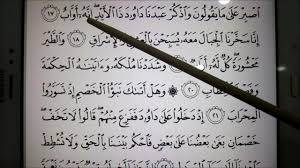 ٱصْبِرْ عَلَىٰ مَا يَقُولُونَ وَٱذْكُرْ عَبْدَنَا دَاوُۥدَ ذَا ٱلْأَيْدِ إِنَّهُۥٓ أَوَّابٌ ١٧
إِنَّا سَخَّرْنَا ٱلْجِبَالَ مَعَهُۥ يُسَبِّحْنَ بِٱلْعَشِىِّ وَٱلْإِشْرَاقِ ١٨ وَٱلطَّيْرَ
مَحْشُورَةً كُلٌّ لَّهُۥٓ أَوَّابٌ ١٩ وَشَدَدْنَا مُلْكَهُۥ وَءَاتَيْنَٰهُ ٱلْحِكْمَةَ
وَفَصْلَ ٱلْخِطَابِ ٢٠ وَهَلْ أَتَىٰكَ نَبَؤُا۟ ٱلْخَصْمِ إِذْ تَسَوَّرُوا۟
ٱلْمِحْرَابَ ٢١ إِذْ دَخَلُوا۟ عَلَىٰ دَاوُۥدَ فَفَزِعَ مِنْهُمْ قَالُوا۟ لَا تَخَفْ
خَصْمَانِ بَغَىٰ بَعْضُنَا عَلَىٰ بَعْضٍ فَٱحْكُم بَيْنَنَا بِٱلْحَقِّ وَلَا تُشْطِطْ